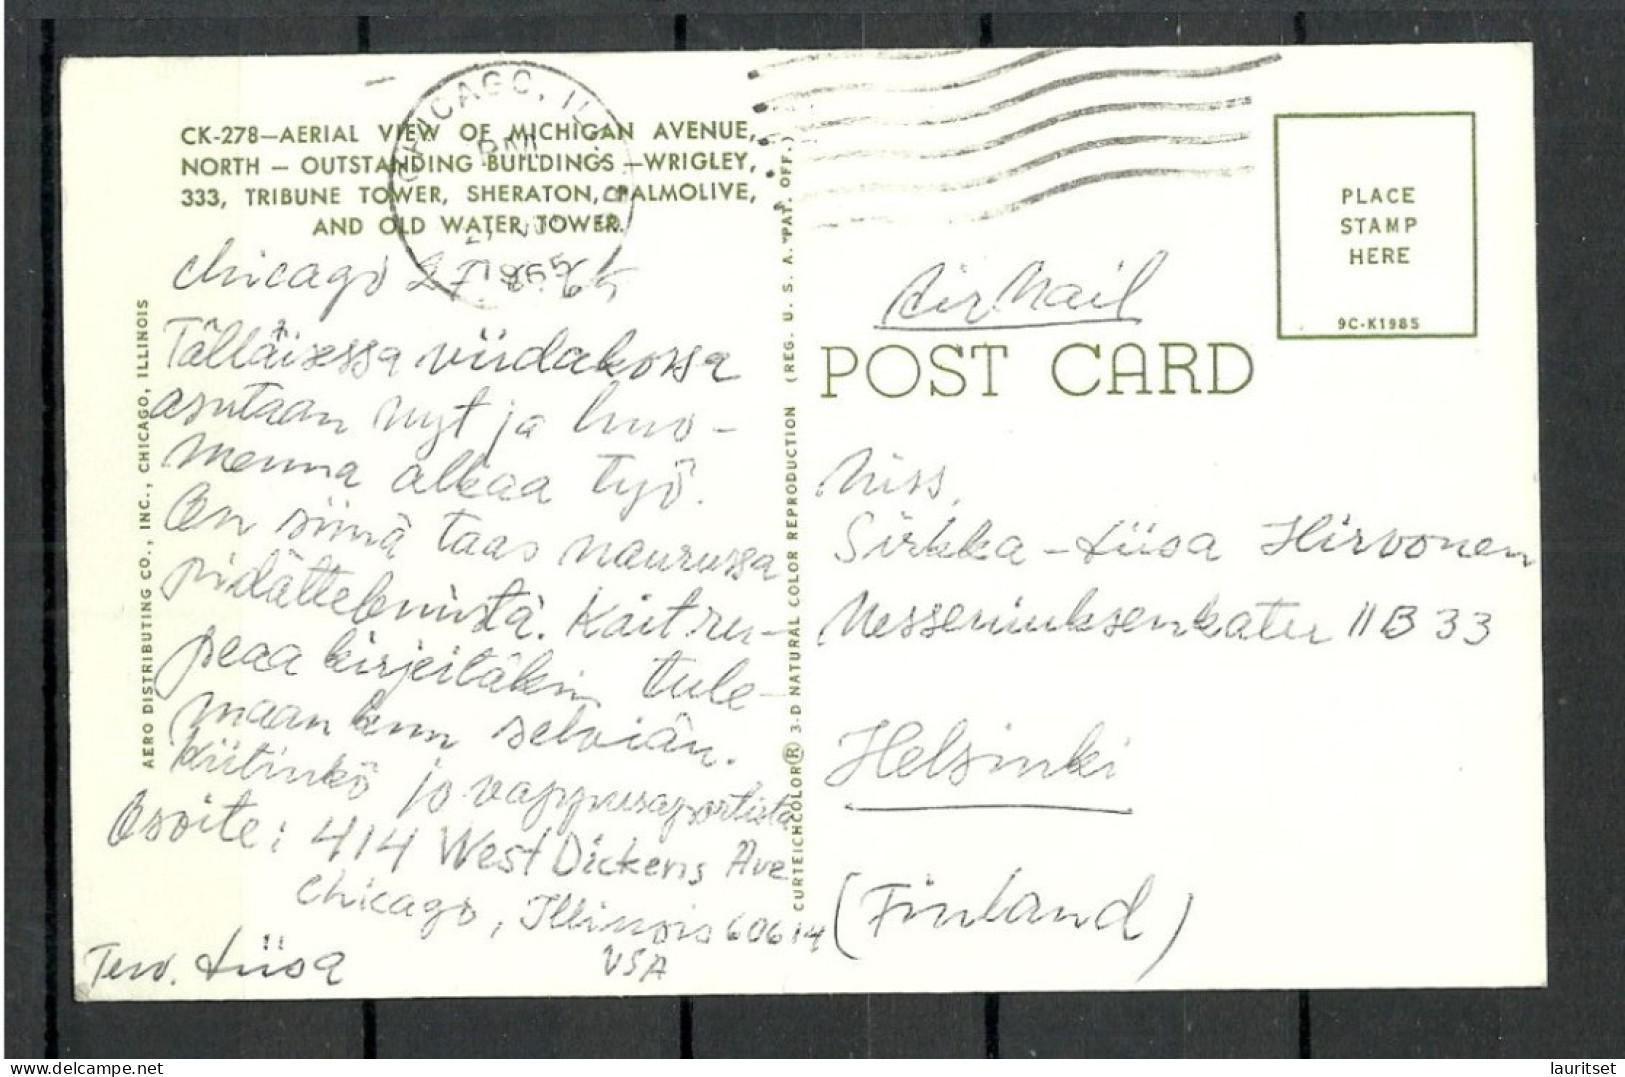 CHICAGO, ILL.
PM
27
1965
CK-278—AERIAL VIEW OF MICHIGAN AVENUE,
NORTH — OUTSTANDING BUILDINGS —WRIGLEY,
333, TRIBUNE TOWER, SHERATON, PALMOLIVE,
AND OLD WATER TOWER.
Chicago 27. 65
Tälläisessa viidakossa
asutaan nyt ja huo-
menna alkaa työ.
On siinä taas naurussa
pidättelemistä. Kait ru-
peaa kirjeitäkin tule-
maan kun selviän.
Kiitinkö jo vappusaportista
Osoite: 414 West Dickens Ave
Chicago, Illinois 60614
USA
Terv. Liisa
AERO DISTRIBUTING CO., INC., CHICAGO, ILLINOIS
CURTEICHCOLOR® 3-D NATURAL COLOR REPRODUCTION (REG. U. S. A. PAT. OFF.)
PLACE
STAMP
HERE
9C-K1985
Air Mail
POST CARD
Miss.
Sirkka-Liisa Hirvonen
Messeniuksenkatu 11 B 33
Helsinki
(Finland)
delcampe.net
lauritset